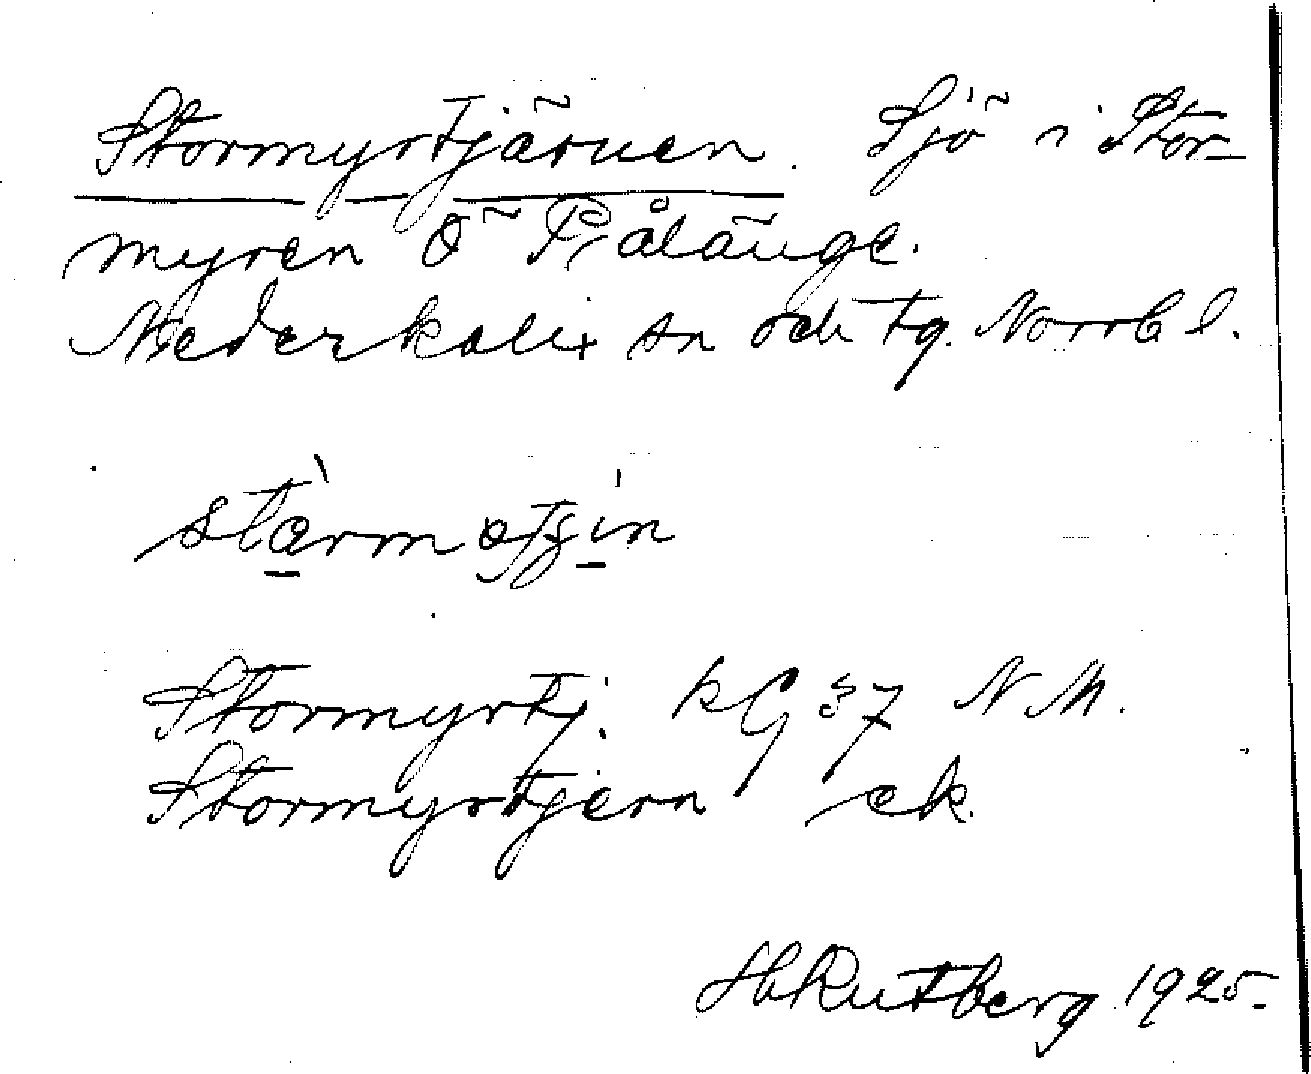 Stormyrtjärnen. Sjö i Stor-
myren Ö Pålänge.
Nederkalix sn och tg. Norrb l.
stàrmotjín
Stormyrtj. kG 37 N M.
Stormyrtjern ek.
H Rutberg 1925.